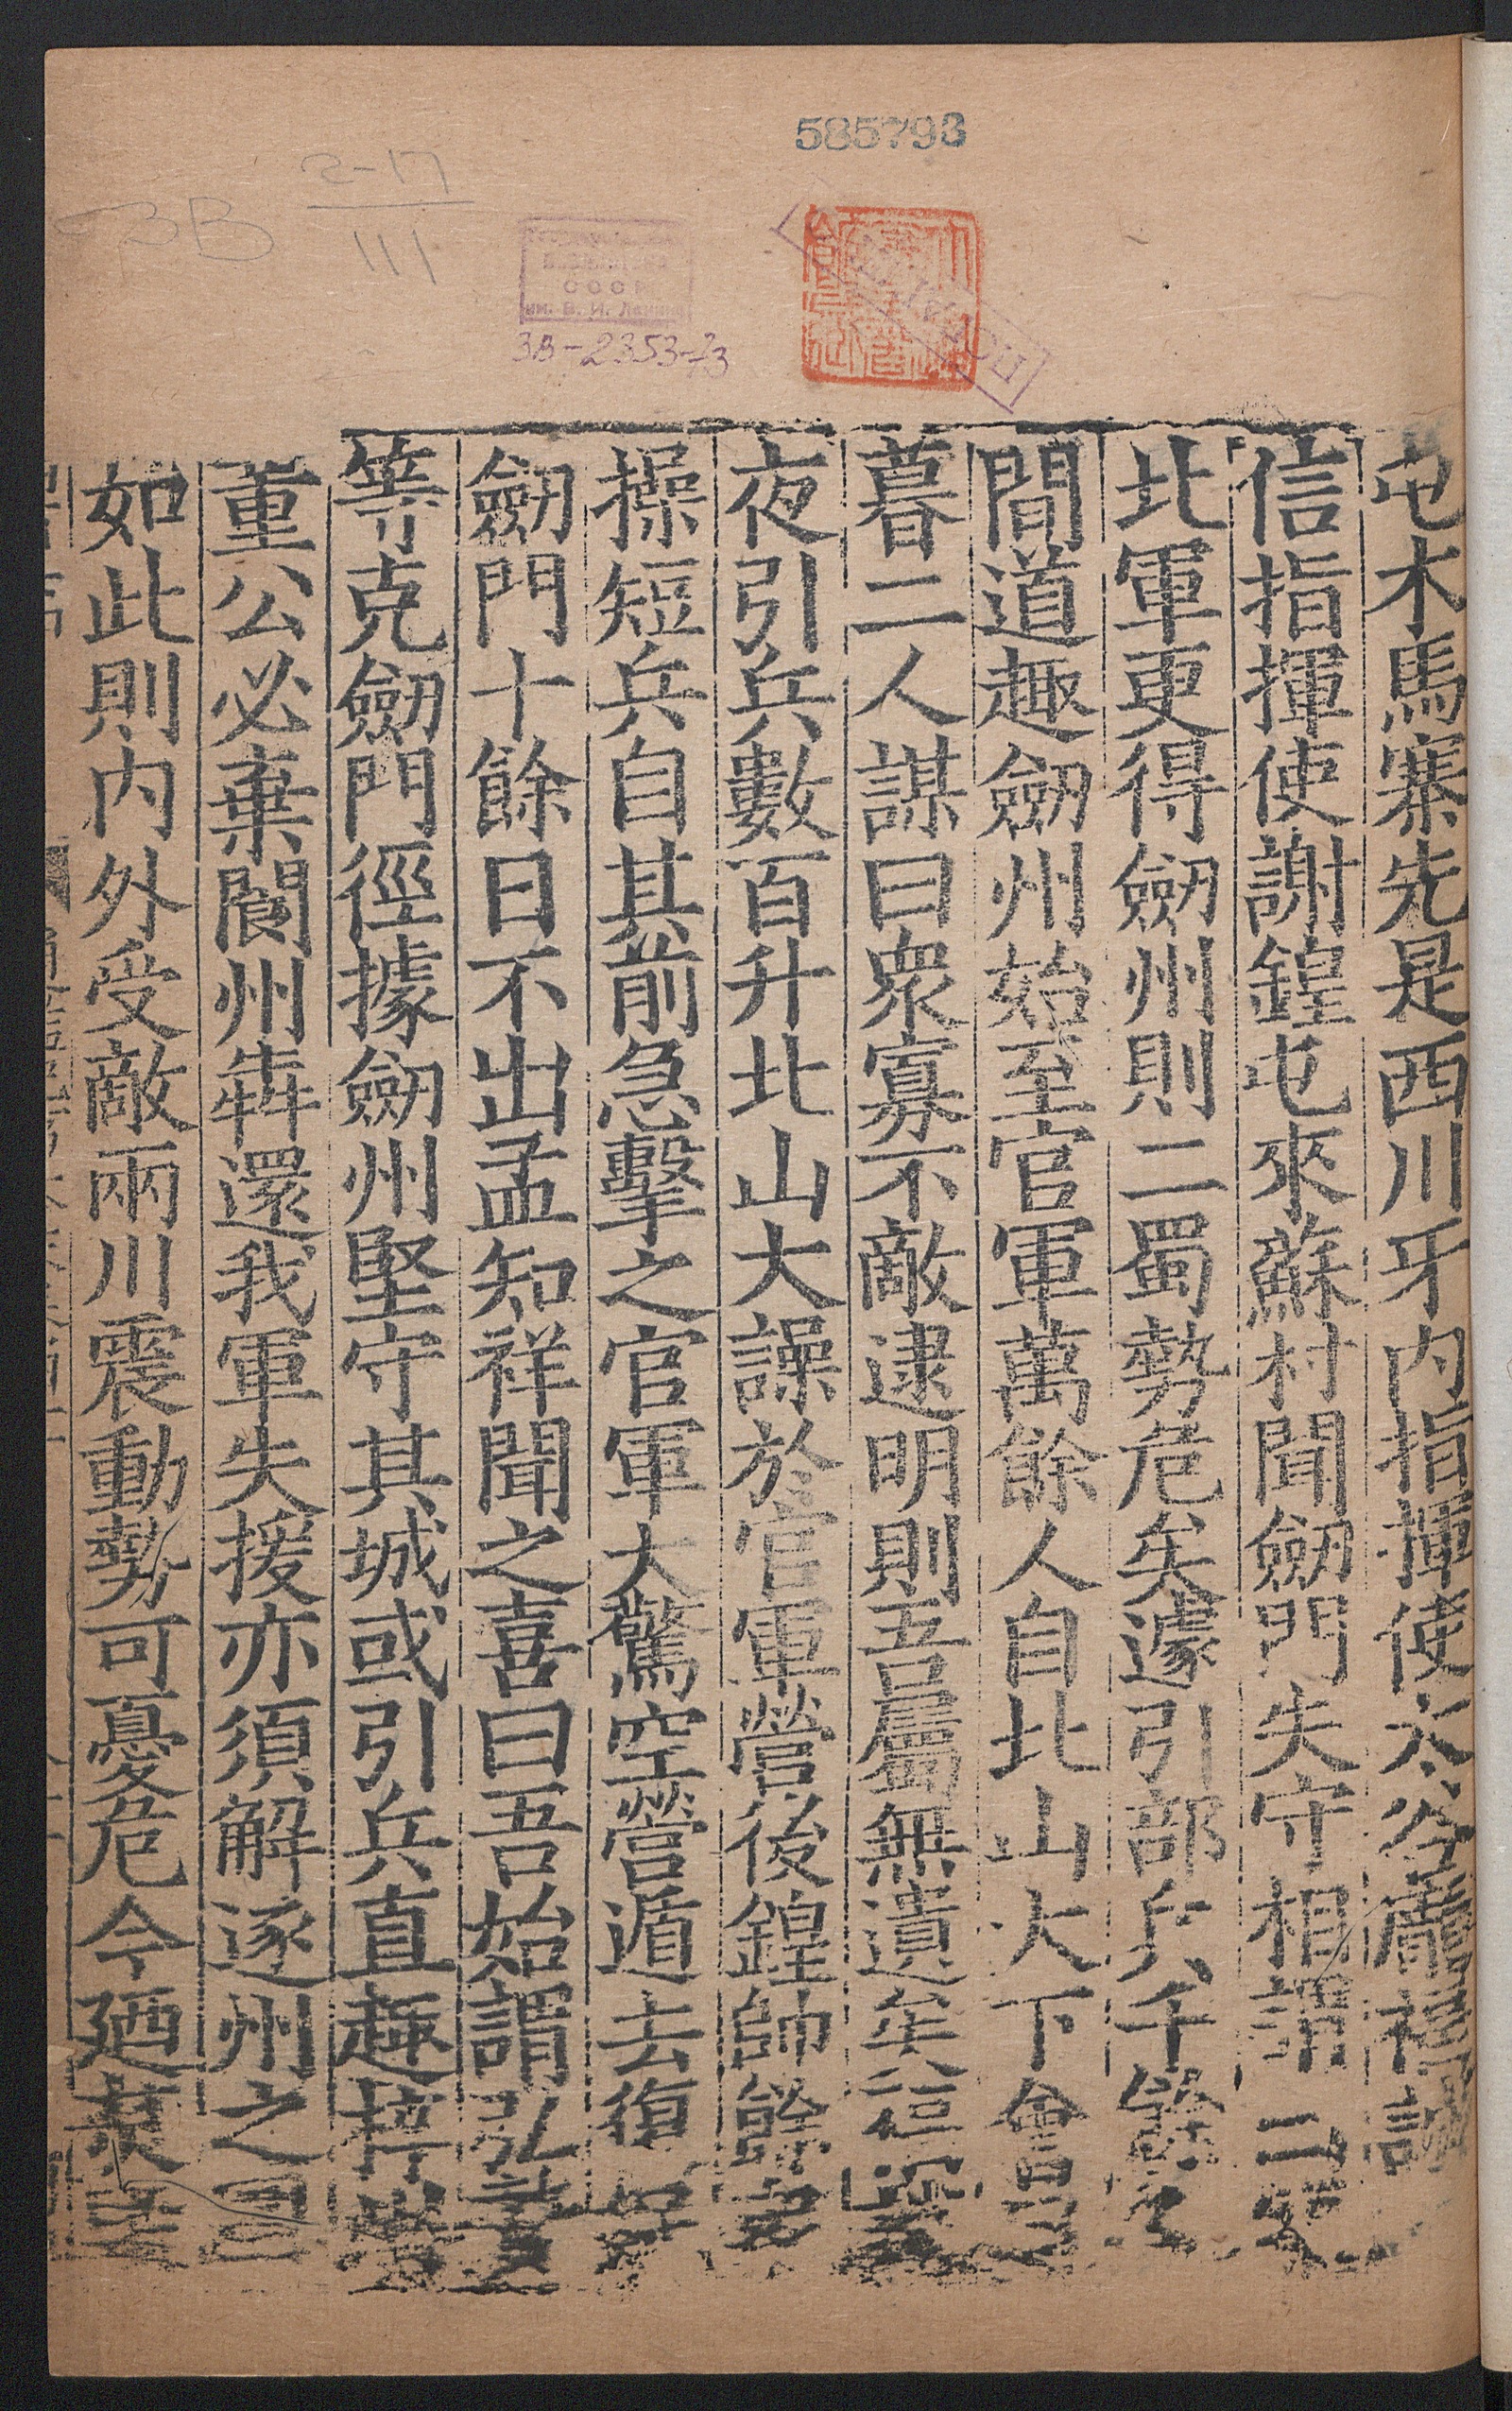 585793
2-17
111
3B
СССР
им. В. И. Ленина
3В-2353-73
屯木馬寨先是西川牙內指揮使太谷龐福誠
信指揮使謝鍠屯來蘇村聞劒門失守相謂曰使
北軍更得劒州則二蜀勢危矣遽引部兵千餘人
間道趣劒州始至官軍萬餘人自北山大下會日
暮二人謀曰衆寡不敵逮明則吾屬無遺矣福誠
夜引兵數百升北山大譟於官軍營後鍠帥餘衆
操短兵自其前急擊之官軍大驚空營遁去復保
劒門十餘日不出孟知祥聞之喜曰吾始謂弘贄
等克劒門徑據劒州堅守其城或引兵直趣梓州
董公必棄閬州犇還我軍失援亦須解遂州之圍
如此則内外受敵兩川震動勢可憂危今廼焚毀